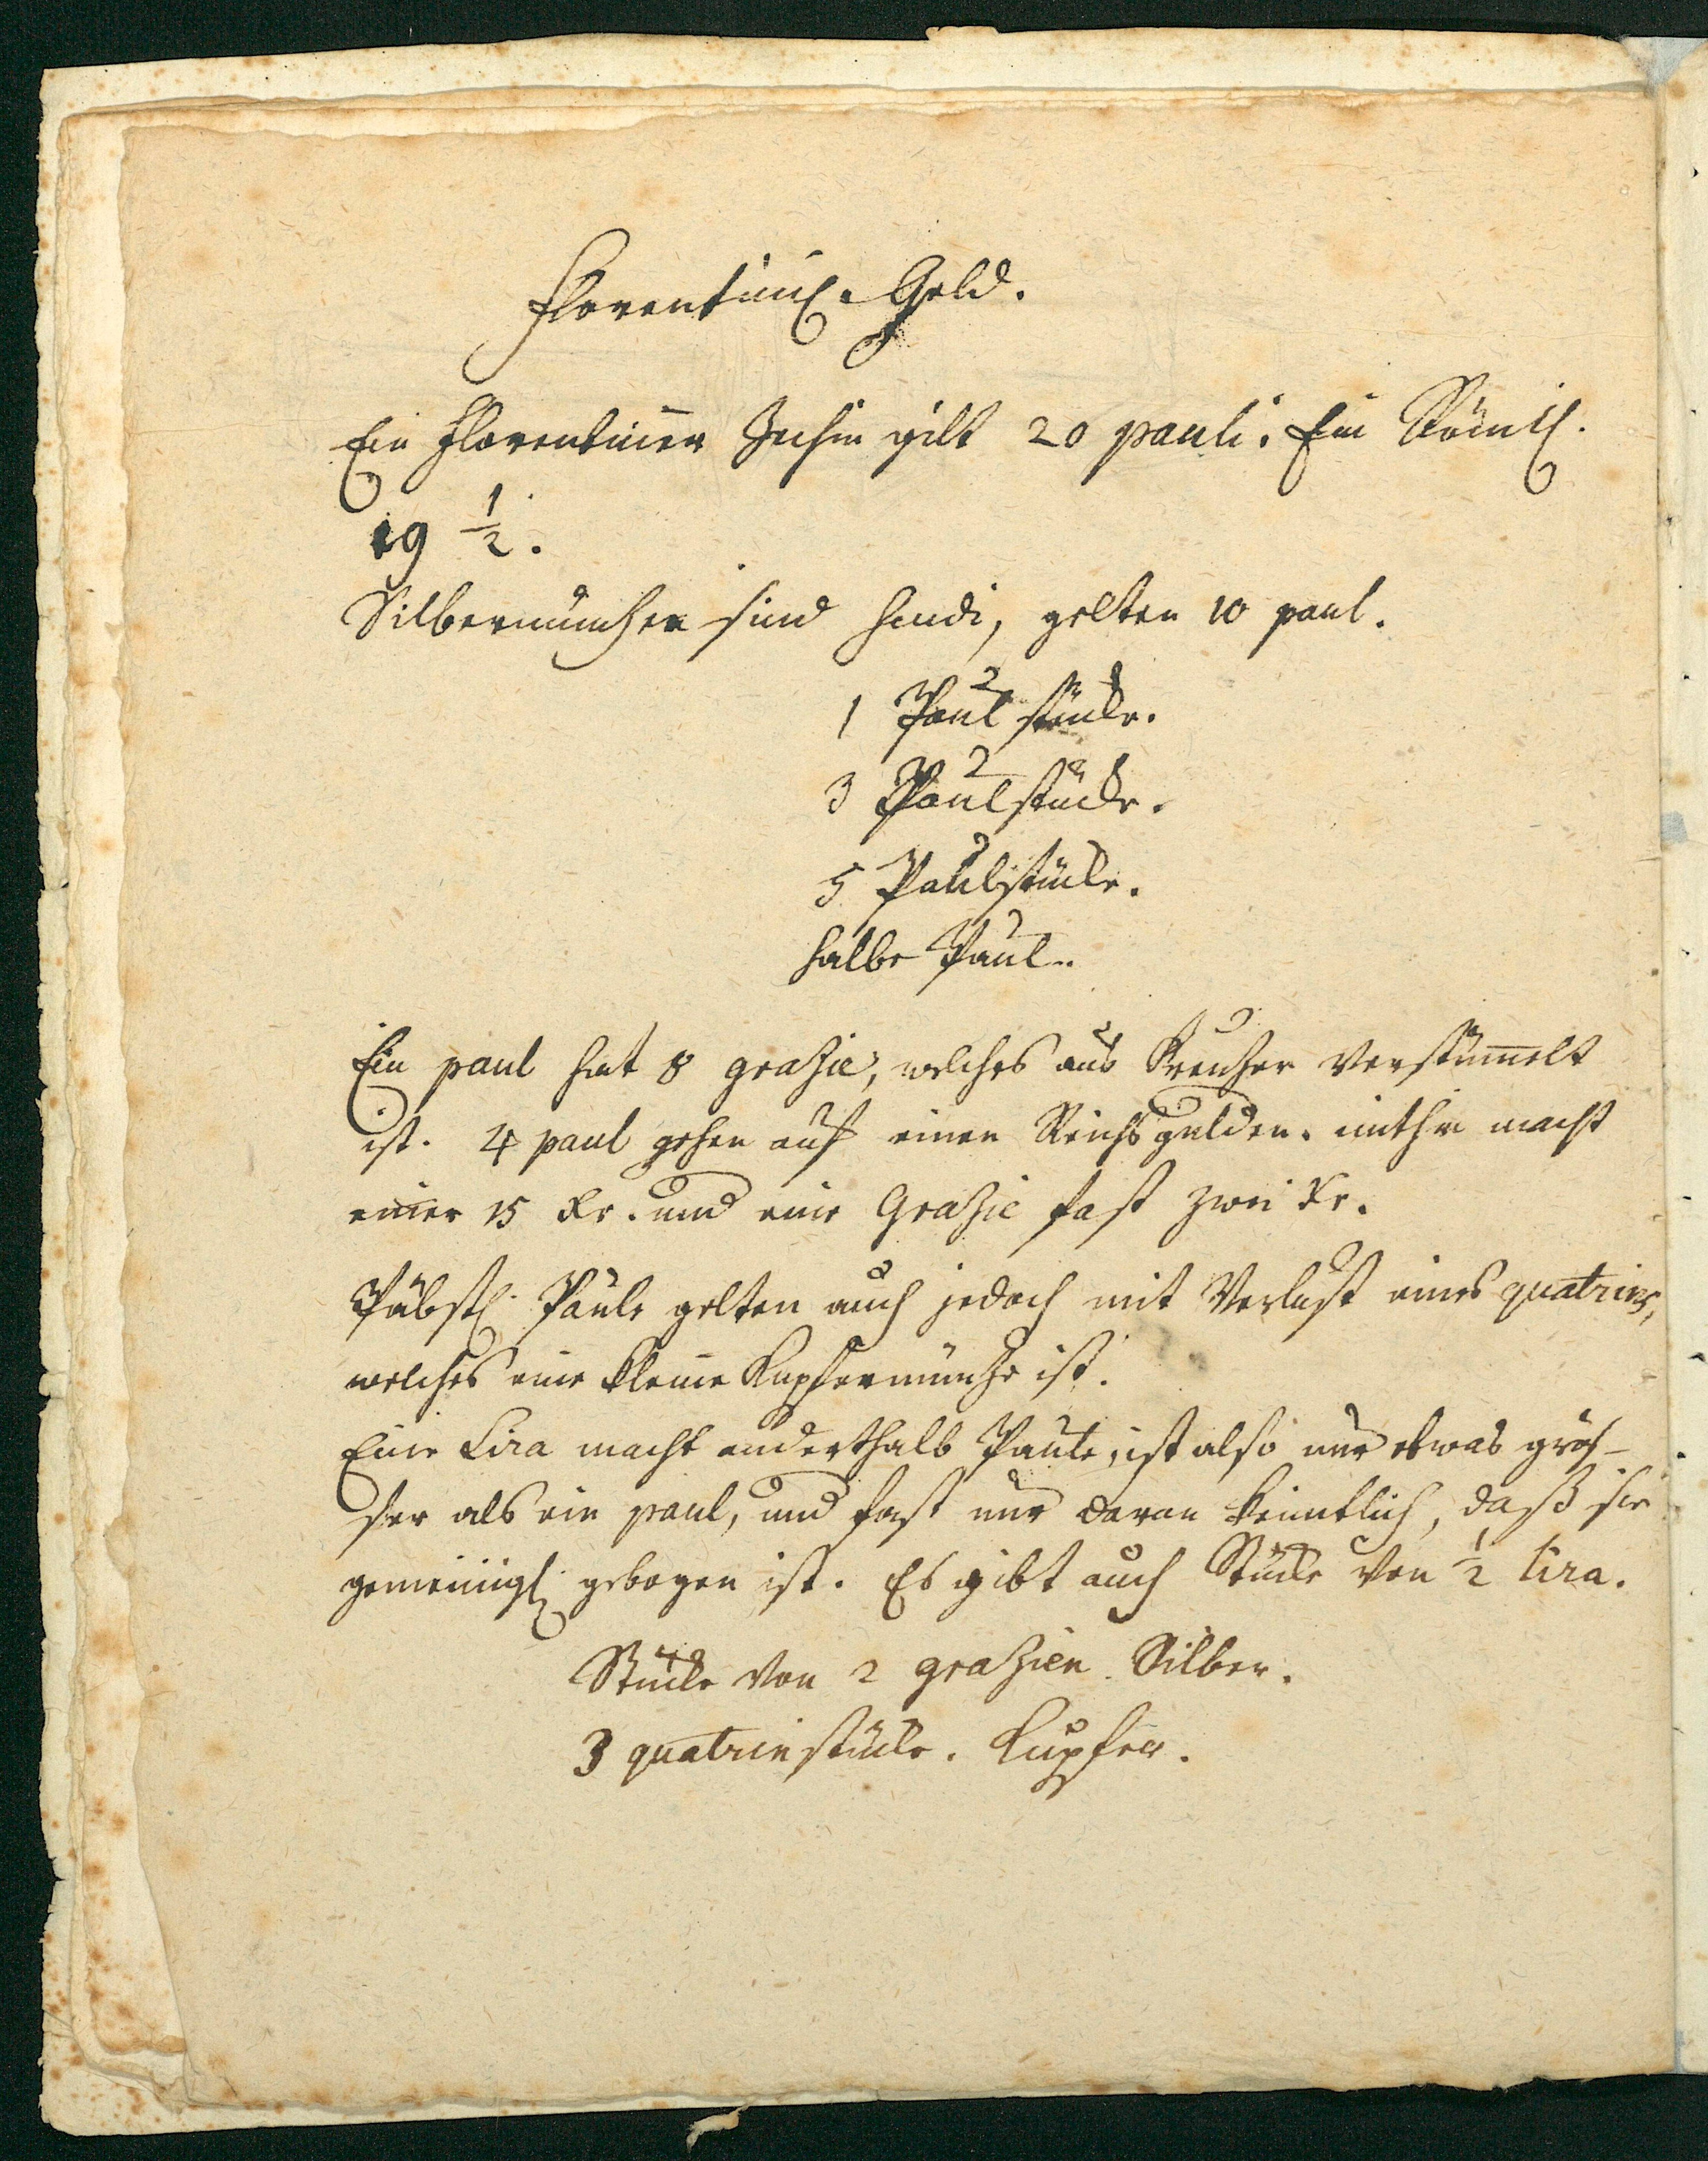 Florentinisch. Geld.
Ein Florentiner Zechin gilt 20 pauli. Ein Römisch.
19 1/2.
Silbermünzen sind Scudi, gelten 10 paul.
1 Paul stücke.
3 Paulstücke.
5 Paulstücke.
halbe Paul.
Ein paul hat 8 grazie, welches aus Kreuzer verstümelt
ist. 4 paul gehen auf einen Reichsgulden. mithin macht
einer 15 Kr. und eine Grazie fast zwei Kr.
Päbstl. Paule gelten auch jedoch mit Verlust eines quatrins,
welches eine kleine Kupfermünze ist.
Eine Lira macht anderthalb Paule, ist also nur etwas grös-
ser als ein paul, und fast nur daran kenntlich, daß sie
gemeinigl. gebogen ist. Es gibt auch Stücke von 1/2 lira.
Stücke von 2 grazien. Silber.
3 quatrinstücke. Kupfer.